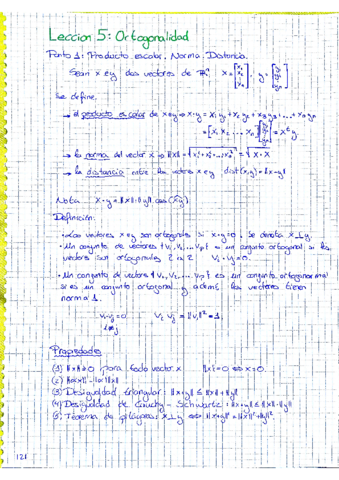 Lección 5: Ortogonalidad
Punto 1: Producto escalar. Norma. Distancia.
Sean x e y dos vectores de ℝⁿ, x = [x₁ x₂ ⋮ xₙ], y = [y₁ y₂ ⋮ yₙ]
Se define:
→ el producto escalar de x e y → x·y = x₁y₁ + x₂y₂ + x₃y₃ + ... + xₙyₙ
= [x₁ x₂ ... xₙ] [y₁ y₂ ⋮ yₙ] = xᵗy
→ la norma del vector x → ‖x‖ = √(x₁² + x₂² + ... + xₙ²) = √(x·x)
→ la distancia entre los vectores x e y dist(x,y) = ‖x-y‖
Nota: x·y = ‖x‖·‖y‖ cos(x,y)
Definición:
• Los vectores x e y son ortogonales si x·y = 0, se denota x⊥y.
• Un conjunto de vectores {v₁, v₂, ... vₚ} es un conjunto ortogonal si los
vectores son ortogonales 2 a 2 vᵢ·vⱼ = 0.
• Un conjunto de vectores {v₁, v₂, ... vₚ} es un conjunto ortonormal
si es un conjunto ortogonal y además los vectores tienen
norma 1.
vᵢ·vⱼ = 0 vᵢ·vᵢ = ‖vᵢ‖² = 1.
i≠j
Propiedades
(1) ‖x‖ ≥ 0 para todo vector x ‖x‖ = 0 ⇔ x = 0.
(2) ‖αx‖ = |α|‖x‖
(3) Desigualdad triangular: ‖x+y‖ ≤ ‖x‖ + ‖y‖
(4) Desigualdad de Cauchy-Schwartz: ‖x·y‖ ≤ ‖x‖·‖y‖
(5) Teorema de pitágoras: x⊥y ⇔ ‖x+y‖² = ‖x‖² + ‖y‖².
121